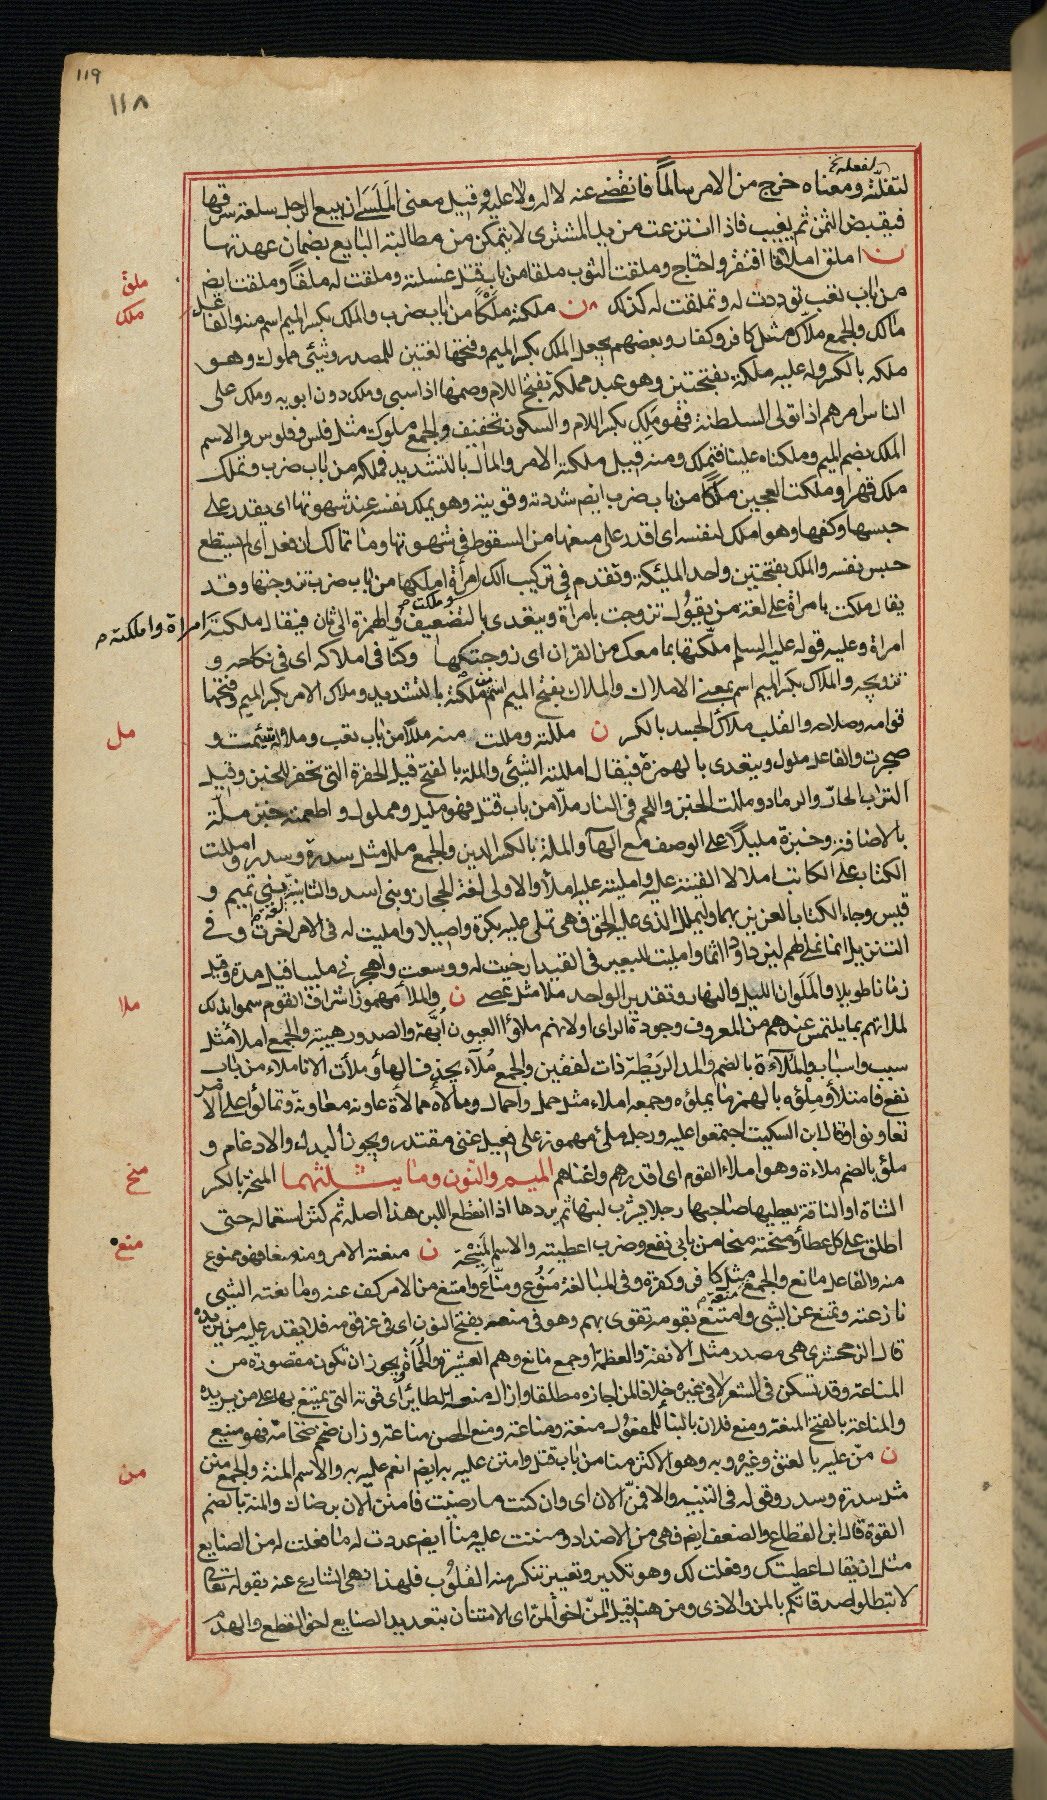 119
١١٨
لتفلّته ومعناه خرج من الامر سالماً فانقضى عنه لا له ولا عليه وقيل معنى المَلَسَى ان يبيع الرجل سلعته سرقها
فيقبض الثمن ثم يغيب فاذا انتزعت من يد المشترى لا يتمكن من مطالبة البايع بضمان عهدتها
ن املق املاقا افتقر واحتاج وملقت الثوب ملقا من باب قتل غسلته وملقت له ملقاً وملقت ايض
ملق
من باب تعب توددت له وتملقت له كذلك ن ملكته مَلْكاً من باب ضرب والملك بكسر الميم اسم منه والفاعل
ملك
مالك والجمع ملاّك مثل كافر وكفار وبعضهم يجعل الملك بكسر الميم وفتحها لغتين للمصدر وشيئ مملوك وهو
ملكه بالكسر وله عليه ملكة بفتحتين وهو عبد مملكة بفتح اللام وضمها اذا سبى وملك دون ابويه وملك على
الناس امرهم اذا تولى السلطنة فهو مَلِك بكسر اللام والسكون تخفيف والجمع ملوك مثل فلس وفلوس والاسم
الملك بضم الميم وملكناه علينا فتملك ومنه قيل ملكته الامر والمال بالتشديد فملكه من باب ضرب وتملك
ملك قهرا وملكت العجين ملكا من باب ضرب ايضم شددته وقويته وهو يملك نفسه عند شهوتها اى يقدر على
حبسها وكفها وهو املك لنفسه اى اقدر على منعها من السقوط فى شهوتها وما تمالك ان فعل اى لم يستطع
حبس نفسه والملك بفتحتين واحد الملئكة وتقدم فى تركيب الك وملكت امرأة املكها من باب ضرب تزوجتها وقد
يقال ملكت بامرأة على لغة من يقول تزوجت بامرأة ويتعدى بالتضعيف والهمزة الى ثان فيقال ملكته امراة واملكته
امراة وعليه قوله عليه السلم ملكتها بما معك من القران اى زوجتكها وكنّا فى املاكه اى فى نكاحه و
تزويجه والملاك بكسر الميم اسم بمعنى الاملاك والملاك بفتح الميم اسم من ملّكته بالتشديد وملاك الامر بكسر الميم وفتحها
قوامه وصلاحه والقلب ملاك الجسد بالكسر ن مللته ومللت منه مللا من باب تعب وملالة سئمت و
مل
ضجرت والفاعل ملول ويتعدى بالهمزة فيقال امللته الشيئ والملة بالفتح قيل الحفرة التى تحفر للخبز وقيل
التراب الحارّ والرماد ومللت الخبز واللحم فى النار ملّا من باب قتل فهو مليل ومملول واطعمته خبز ملّة
بالاضافة وخبزة مليلا على الوصف مع الهآ والملة بالكسر الدين والجمع ملل مثل سدرة وسدر وامللت
الكتاب على الكاتب املالا القيته عليه وامليته عليه املأ والاولى لغة الحجاز وبنى اسد والثانية لغة بنى تميم و
قيس وجاء الكتاب العزيز بهما وليملل الذى عليه الحق فهى تملى عليه بكرة واصيلا وامليت له فى الامر اخرت وفى
التنزيل انما نملى لهم ليزدادوا اثما وامليت للبعير فى القيد ارخيت له ووسعت واهجرنى مليا قيل مدة وقيل
زمانا طويلا والمَلَوان الليل والنهار وتقدير الواحد ملا مثل عصى ن والملأ مهموز اشراف القوم سموا بذلك
ملا
لملائهم بما يلتمس عندهم من المعروف وجودة الراى او لانهم ملاؤا العيون اُبّهة والصدور هيبة والجمع املأ مثل
سبب واسباب والمُلآءة بالضم والمد الريطة ذات لفقين والجمع مُلآء بحذف الهأ وملأت الانا ملاء من باب
نفع فامتلأ ومِلْؤه بالهمز ما يملؤه وجمعه املاء مثل حمل واحمال ومالأه ممالأة عاونه معاونة وتمالؤا على الامر
تعاونوا وقال ابن السكيت اجتمعوا عليه ورجل ملئ مهموز على فعيل غنى مقتدر ويجوز البدل والادغام و
ملؤ بالضم ملاءة وهو املاء القوم اى اقدرهم واغناهم الميم والنّون وما يثلثهما المنحة بالكسر
منح
الشاة او الناقة يعطيها صاحبها رجلا يشرب لبنها ثم يردها اذا انقطع اللبن هذا اصله ثم كثر استعماله حتى
اطلق على كل عطأ ومنحته منحا من بابى نفع وضرب اعطيته والاسم المَنِيْحَة ن منعته الامر ومنه منعا فهو ممنوع
منع
منه والفاعل مانع والجمع منعة مثل كافر وكفرة وفى المبالغة مَنُوع ومنّاع وامتنع من الامر كف عنه ومانعته الشيئ
نازعته وتمنع عن الشى وامتنع بقومه تقوى بهم وهو فى منعه بفتح النون اى فى عز قومه فلا يقدر عليه من يريده
قال الزمحشرى هى مصدر مثل الانفة والعظمة او جمع مانع وهم العشيرة والحُماة ويجوز ان تكون مقصورة من
المناعة وقد تسكن فى الشعر لا فى غيره خلافا لمن اجازه مطلقا وازال منعة الطاير اى قوته التى يمتنع بها على من يريده
والمناعة بالفتح المنعة ومنع فلان بالبنأ للمفعول منعة ومناعة ومنع الحصن مناعة وزان ضخم ضخامة فهو منيع
ن منّ عليه بالعتق وغيره وبه وهو الاكثر منا من باب قتل وامتن عليه به ايضم انعم عليه به والاسم المنة والجمع منن
من
مثل سدرة وسدر وقوله فى التنبيه والا فمنّ الآن اى وان كنت ما رضيت فامنن الآن برضاك والمنة بالضم
القوة قال ابن القطاع والضعف ايضم فهى من الاضداد ومننت عليه منا ايضم عددت له ما فعلت له من الصنايع
مثل ان يقال اعطيتك وفعلت لك وهو تكدير وتعيير تنكر منه القلوب فلهذا نهى الشارع عنه بقوله تعالى
لا تبطلوا صدقاتكم بالمن والاذى ومن هنا قيل المنّ اخو المنّ اى الامتنان بتعديد الصنايع اخو القطع والهدم